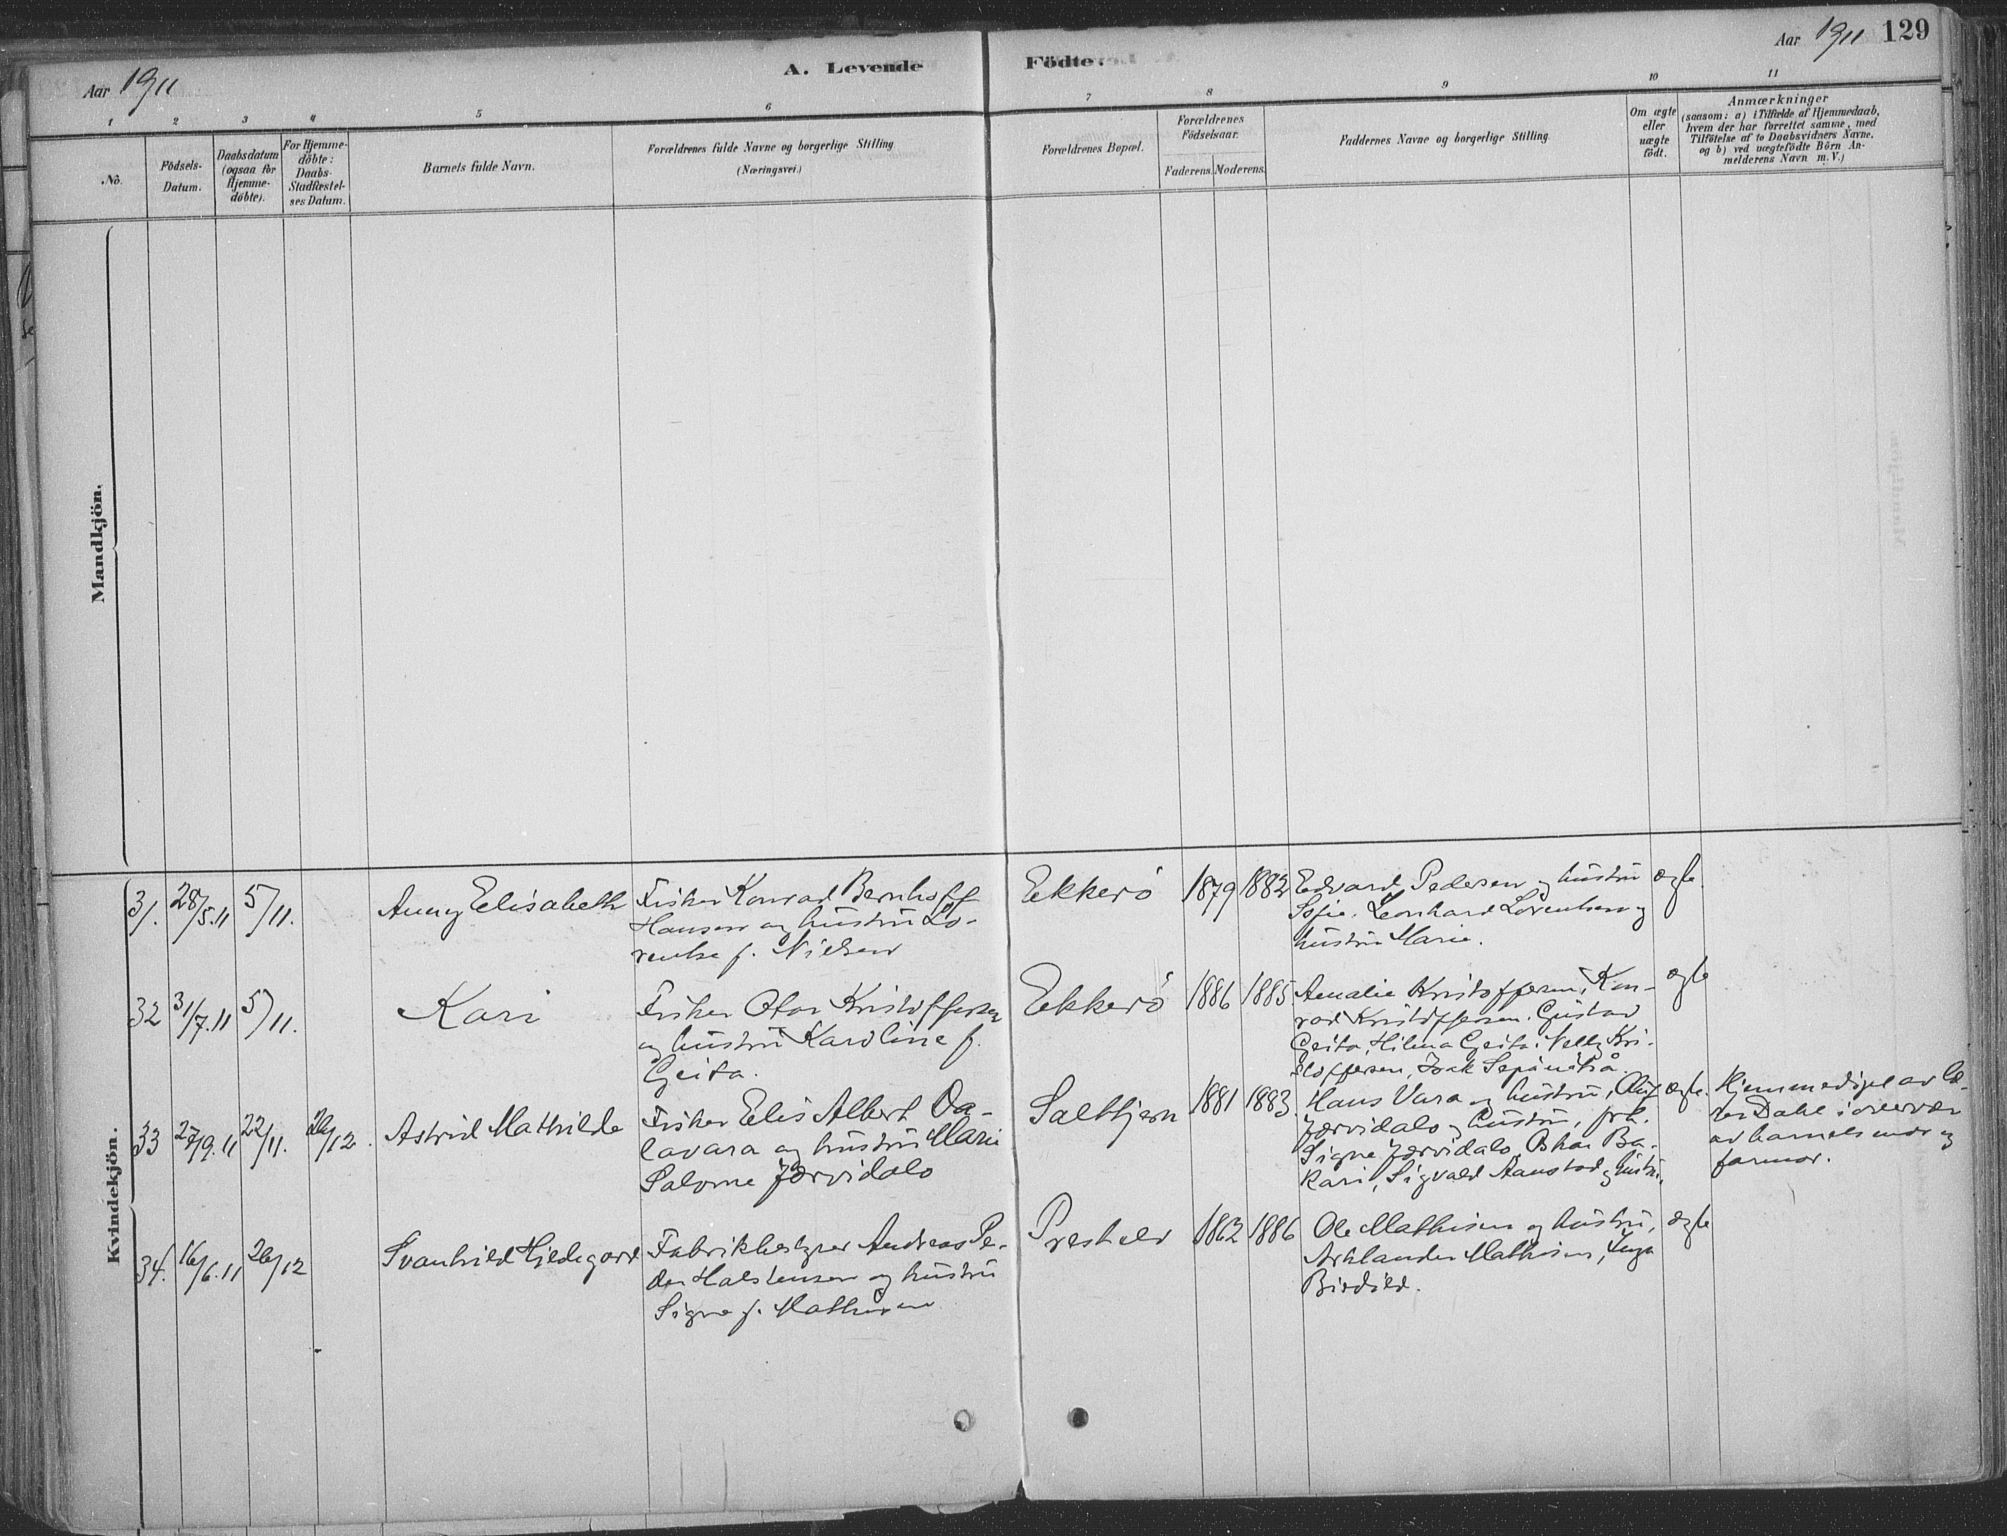 Aar 1911
A. Levende Födte.
Aar 1911 129
1 2 3 4 5 6 7 8 9 10 11
No.
Födsels-Datum.
Daabsdatum (ogsaa for Hjemme-döbte).
For Hjemme-döbte: Daabs-Stadfæstel-ses Datum.
Barnets fulde Navn.
Forældrenes fulde Navne og borgerlige Stilling
(Næringsvei.)
Forældrenes Bopæl.
Forældrenes Födselsaar.
Faderens. Moderens.
Faddernes Navne og borgerlige Stilling.
Om ægte eller uægte födt.
Anmærkninger
(saasom: a) i Tilfælde af Hjemmedaab,
hvem der har forrettet samme, med
Tilföielse af to Daabsvidners Navne,
og b) ved uægtefödte Börn An-
melderens Navn m. V.)
Mandkjön.
Kvindekjön.
31. 28/5.11 5/11. Anny Elisabeth
Fisker Konrad Bernhoff
Hansen og hustru Lo-
rentse f. Nielsen
Ekkerö 1879 1882
Edvard Pedersen og hustru
Sofie. Leonhard Lorentsen og
hustru Marie.
ægte
32 31/7.11 5/11. Kari
Fisker Olav Kristoffersen
og hustru Karoline f.
Geita.
Ekkerö 1886 1885
Amalie Kristoffersen, Kon-
rad Kristoffersen. Gustav
Geita, Hilma Geita. Nelly Kri-
stoffersen,
ægte
33 27/9.11 22/11. 26/12. Astrid Mathilde
Fisker Elis Albert Oa-
lavara og hustru Marie
Salome Jærvidalo
Saltbjern 1881 1883.
Hans Vara og hustru, Oluf
Jærvidalo og hustru, frk.
Signe Jærvidalo, Oskar Ba-
kari, Sigvald Aanstad og hustru.
ægte.
Hjemmedöpt av læ-
rer Dahl i overvær
av barnets mor og
farmor.
34. 16/6.11 26/12 Svanhild Hjldegard
Fabrikbestyrer Andreas Pe-
der Halstensen og hustru
Signe f. Mathisen
Prestelv 1862 1886
Ole Mathisen og hustru,
Arklander Mathisen, Inga
ægte